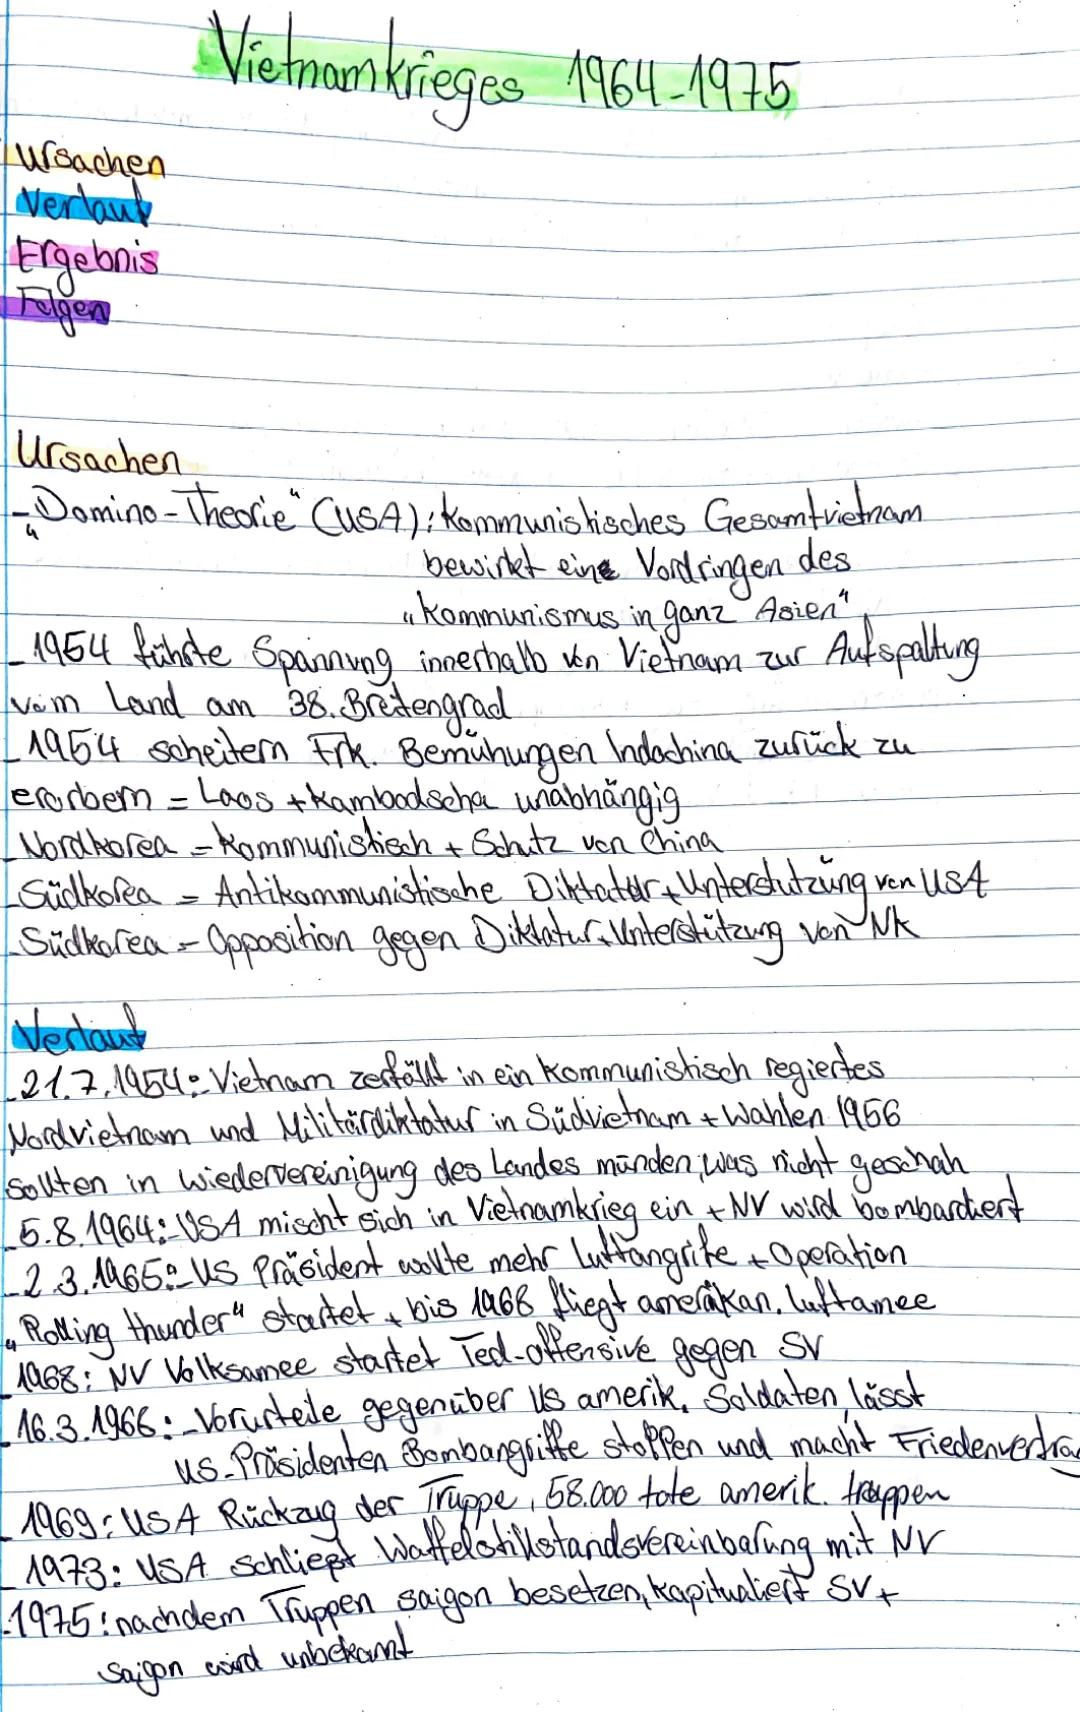 Vietnamkrieges 1964-1975
Ursachen
Verlauf
Ergebnis
Folgen
Ursachen
- „Domino-Theorie“ (USA): Kommunistisches Gesamtvietnam
bewirkt eine Vordringen des
„Kommunismus in ganz Asien“
- 1954 führte Spannung innerhalb von Vietnam zur Aufspaltung
vom Land am 38. Breitengrad
- 1954 scheitern Frk. Bemühungen Indochina zurück zu
erorbern = Laos + Kambodscha unabhängig
- Nordkorea = Kommunistisch + Schutz von China
- Südkorea = Antikommunistische Diktatur + Unterstützung von USA
- Südkorea = Opposition gegen Diktatur + Unterstützung von NK
Verlauf
- 21.7.1954: Vietnam zerfällt in ein Kommunistisch regiertes
Nordvietnam und Militärdiktatur in Südvietnam + Wahlen 1956
sollten in wiedervereinigung des Landes münden, was nicht geschah
- 5.8.1964: - USA mischt sich in Vietnamkrieg ein + NV wird bombardiert
- 2.3.1965: - US Präsident wollte mehr Luftangrife + Operation
„Rolling thunder“ startet + bis 1968 fliegt amerikan. luftamee
- 1968: NV Volksamee startet Ted-offensive gegen SV
- 16.3.1968: - Vorurteile gegenüber US amerik. Soldaten, lässt
US-Präsidenten Bombangriffe stoppen und macht Friedenvertrag
- 1969: USA Rückzug der Truppe, 58.000 tote amerik. truppen
- 1973: USA schließt Waffelstillstandsvereinbarung mit NV
- 1975: nachdem Truppen saigon besetzen, kapituliert SV +
saigon wird unbekannt